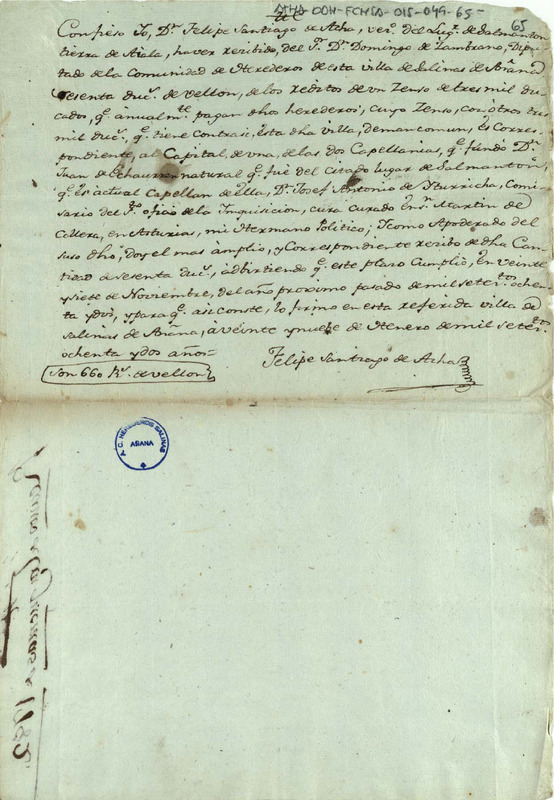 ATHA-DDH-FCHSA-015-049-65
65
Confieso Yo, Dn. Felipe Santiago de Atha, vezº. del Lugr. de Salmanton
tierra de Aiala, haver rezibido, del Sr. Dn. Domingo de Zambrano, Dipu-
tado de la Comunidad de Herederos de esta villa de Salinas de Añana
sesenta ducs. de vellon, de los reditos de un Zenso de tres mil du-
cados, qe. anualmte. pagan dhos herederos, cuyo Zenso, con otros tres
mil ducs. qe. tiene contra si, esta dha villa, de mancomun, es Corres-
pondiente, al Capital, de una, de las dos Capellanias, qe. fundó Dn.
Juan de Echaurren natural qe. fué del citado lugar de Salmanton,
qe. es actual Capellan de ella, Dn. Josef Antonio de Yturricha, Comi-
sario del Sto. oficio de la Inquisicion, cura curado en Sn. Martin de
Collera, en Asturias, mi Hermano Politico; Y como Apoderado del
suso dho, doy el mas amplio, y Correspondiente rezibo de dha Can-
tidad de sesenta ducs. adbirtiendo qe. este plazo cumplió, en veinte
y siete de Noviembre, del año proximo pasado de mil setetos. ochen-
ta y dos, y para qe. asi conste, lo firmo en esta referida villa de
Salinas de Añana, a veinte y nuebe de Henero de mil setetos.
ochenta y dos años=
Felipe Santiago de Atha
Son 660 Rs. de vellon
A. C. HEREDEROS SALINAS
AÑANA